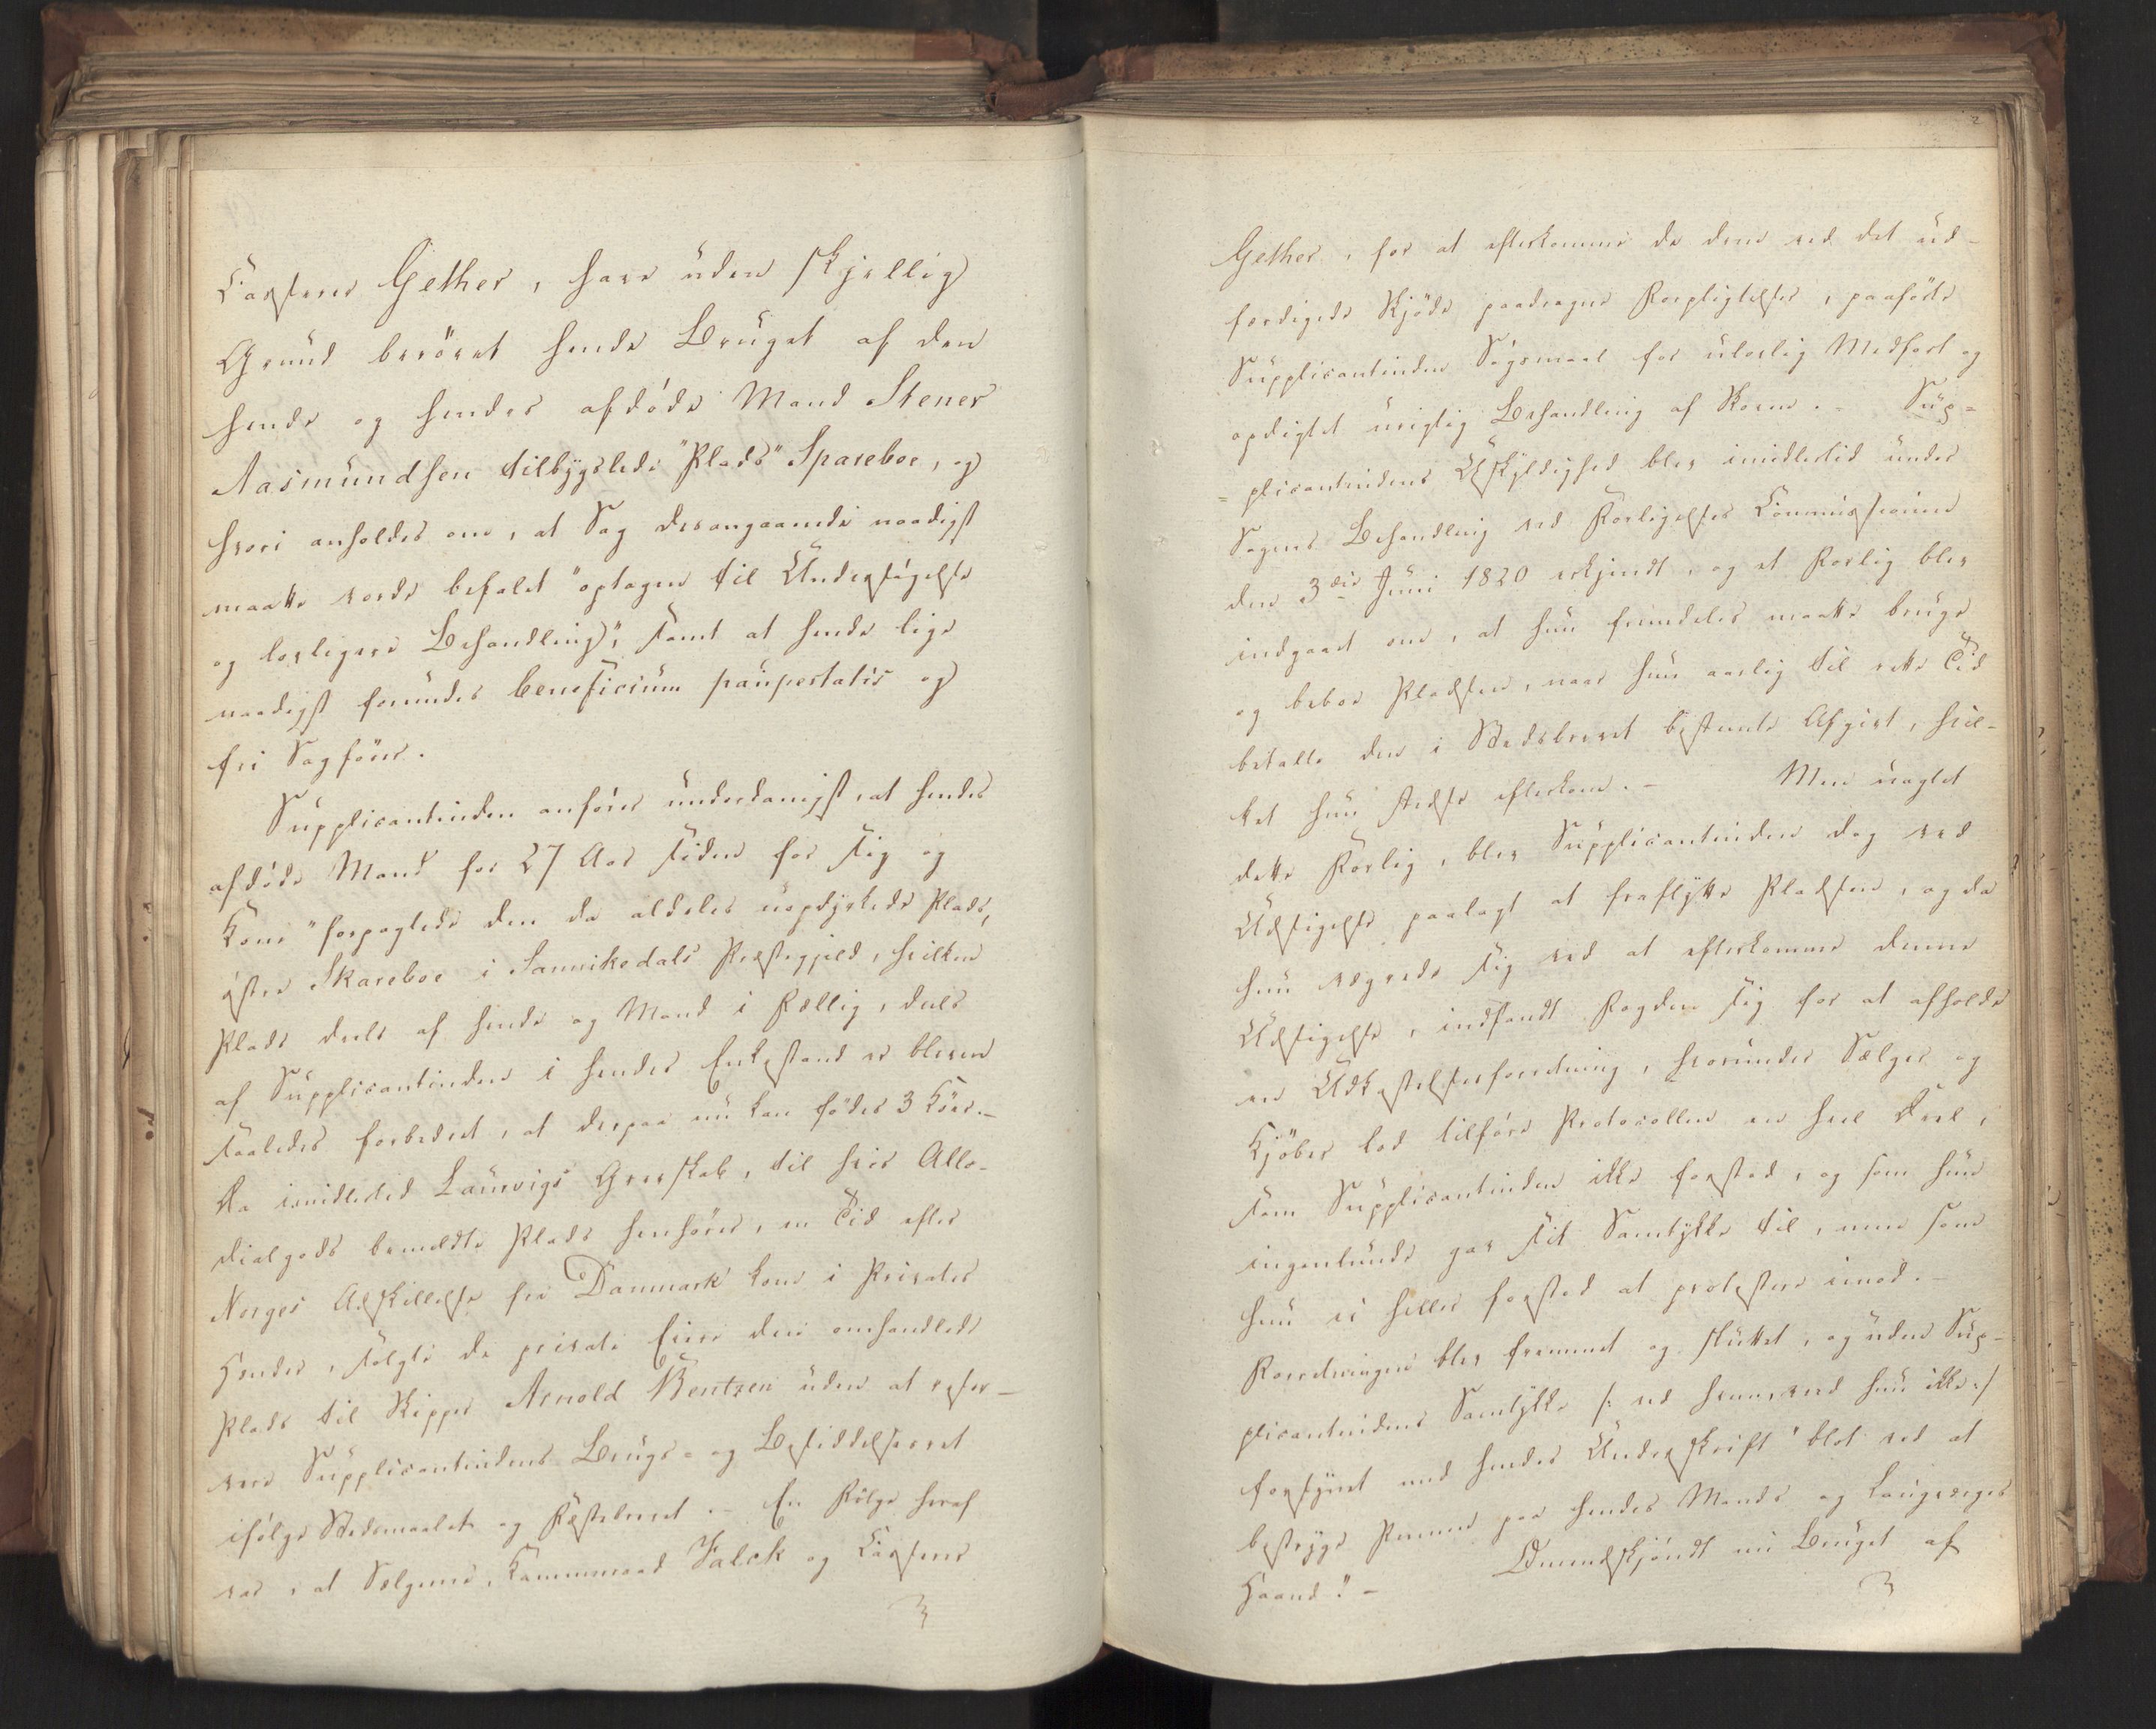 Carstens Gether, have uden skjellig
Grund berövet hende Bruget af den
hende og hendes afdöde Mand Stener
Aasmundsen tilbygslede "Plads" Spareboe, og
hvori anholdes om, at Sag desangaaende naadigst
maatte vorde befalet "optagen til Undersögelse
og lovligere Behandling", samt at hende lige
naadigst forundes beneficium paupertatis og
fri Sagförer.
Supplicantinden anförer underdanigst, at hendes
afdöde Mand for 27 Aar siden for sig og
Kone "forpagtede den da aldeles uopdyrkede Plads,
östre Skareboe i Sannikedals Præstegjeld, hvilken
Plads deels af hende og Mand i Fællig, deels
af Supplicantinden i hendes Enkestand er bleven
saaledes forbedret, at derpaa nu kan födes 3 Köer.-
Da imidlertid Laurvigs Grevskab, til hvis Allo-
dialgods bemeldte Plads henhörer, en Tid efter
Norges Adskillelse fra Danmark kom i Privates
Hender, solgte de private Eiere den omhandlede
Plads til Skipper Arnold Bentzen uden at reser-
vere Supplicantindens Brugs- og Besiddelsesret
ifölge Stedsmaalet og Fæstebrevet.- En Fölge heraf
var, at Sælgerne, Kammerraad Falck og Carstens
Gether, for at efterkomme de dem ved det ud-
færdigede Skjöde paadragne Forpligtelser, paaförte
Supplicantinden Sögsmaal for ulovlig Medfart og
opdigtet urigtig Behandling af Skoven.- Sup-
plicantindens Uskyldighed blev imidlertid under
Sagens Behandling ved Forligelses Commissionen
den 3die Juni 1820 erkjendt, og et Forlig blev
indgaaet om, at hun fremdeles maatte bruge
og beboe Pladsen, naar hun aarlig til rette Tid
betalte den i Stedsbrevet bestemte Afgivt, hvil-
ket hun stedse efterkom.- Men uagtet
dette Forlig, blev Supplicantinden dog ved
Udsigelse paalagt at fraflytte Pladsen, og da
hun vægrede sig ved at efterkomme denne
Udsigelse, indfandt Fogden sig for at afholde
en Udkastelsesforretning, hvorunder Sælger og
Kjöber lod tilföre Protocollen en heel Deel,
som Supplicantinden ikke forstod, og som hun
ingenlunde gav sit Samtykke til, men som
hun ei heller forstod at protestere imod.-
Forretningen blev fremmet og sluttet, og uden Sup-
plicantindens Samtykke /: ved hvem veed hun ikke:/
forsynet med hendes Underskrift "blot ved at
bestryge Pennen paa hendes Mands og Laugverges
Haand".- Omendskjöndt nu Bruget af